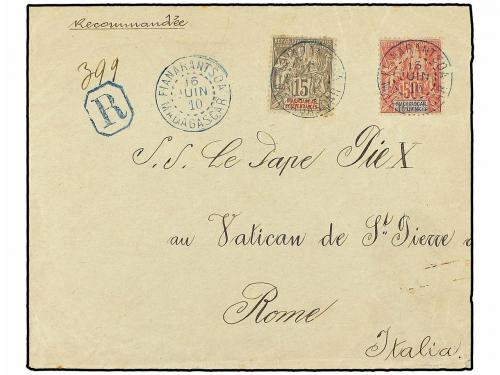 Recommandée
399
R
FIANARANTSOA
16
JUIN
10
MADAGASCAR
15
MADAGASCAR
16
JUIN
50
MADAGASCAR
S. S. Le Pape Pie X
au Vatican de St. Pierre
Rome
Italia.